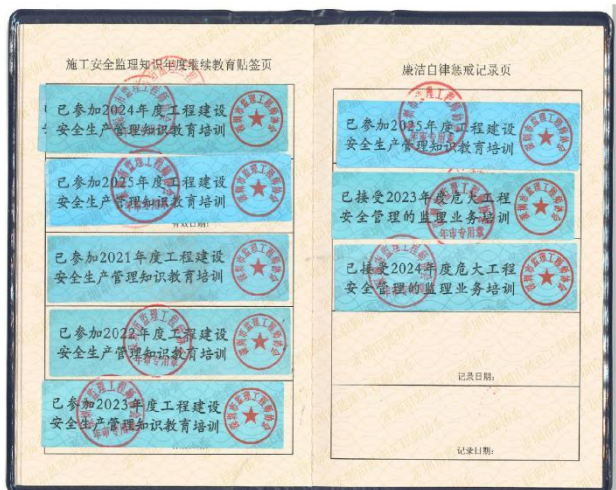 施工安全监理知识年度继续教育贴签页
已参加2024年度工程建设
安全生产管理知识教育培训
已参加2025年度工程建设
安全生产管理知识教育培训
有效日期:
已参加2021年度工程建设
安全生产管理知识教育培训
已参加2022年度工程建设
安全生产管理知识教育培训
已参加2023年度工程建设
安全生产管理知识教育培训
深圳市监理工程师协会
年审专用章
廉洁自律惩戒记录页
已参加2025年度工程建设
安全生产管理知识教育培训
已接受2023年度危大工程
安全管理的监理业务培训
已接受2024年度危大工程
安全管理的监理业务培训
深圳市监理工程师协会
年审专用章
记录日期:
记录日期: